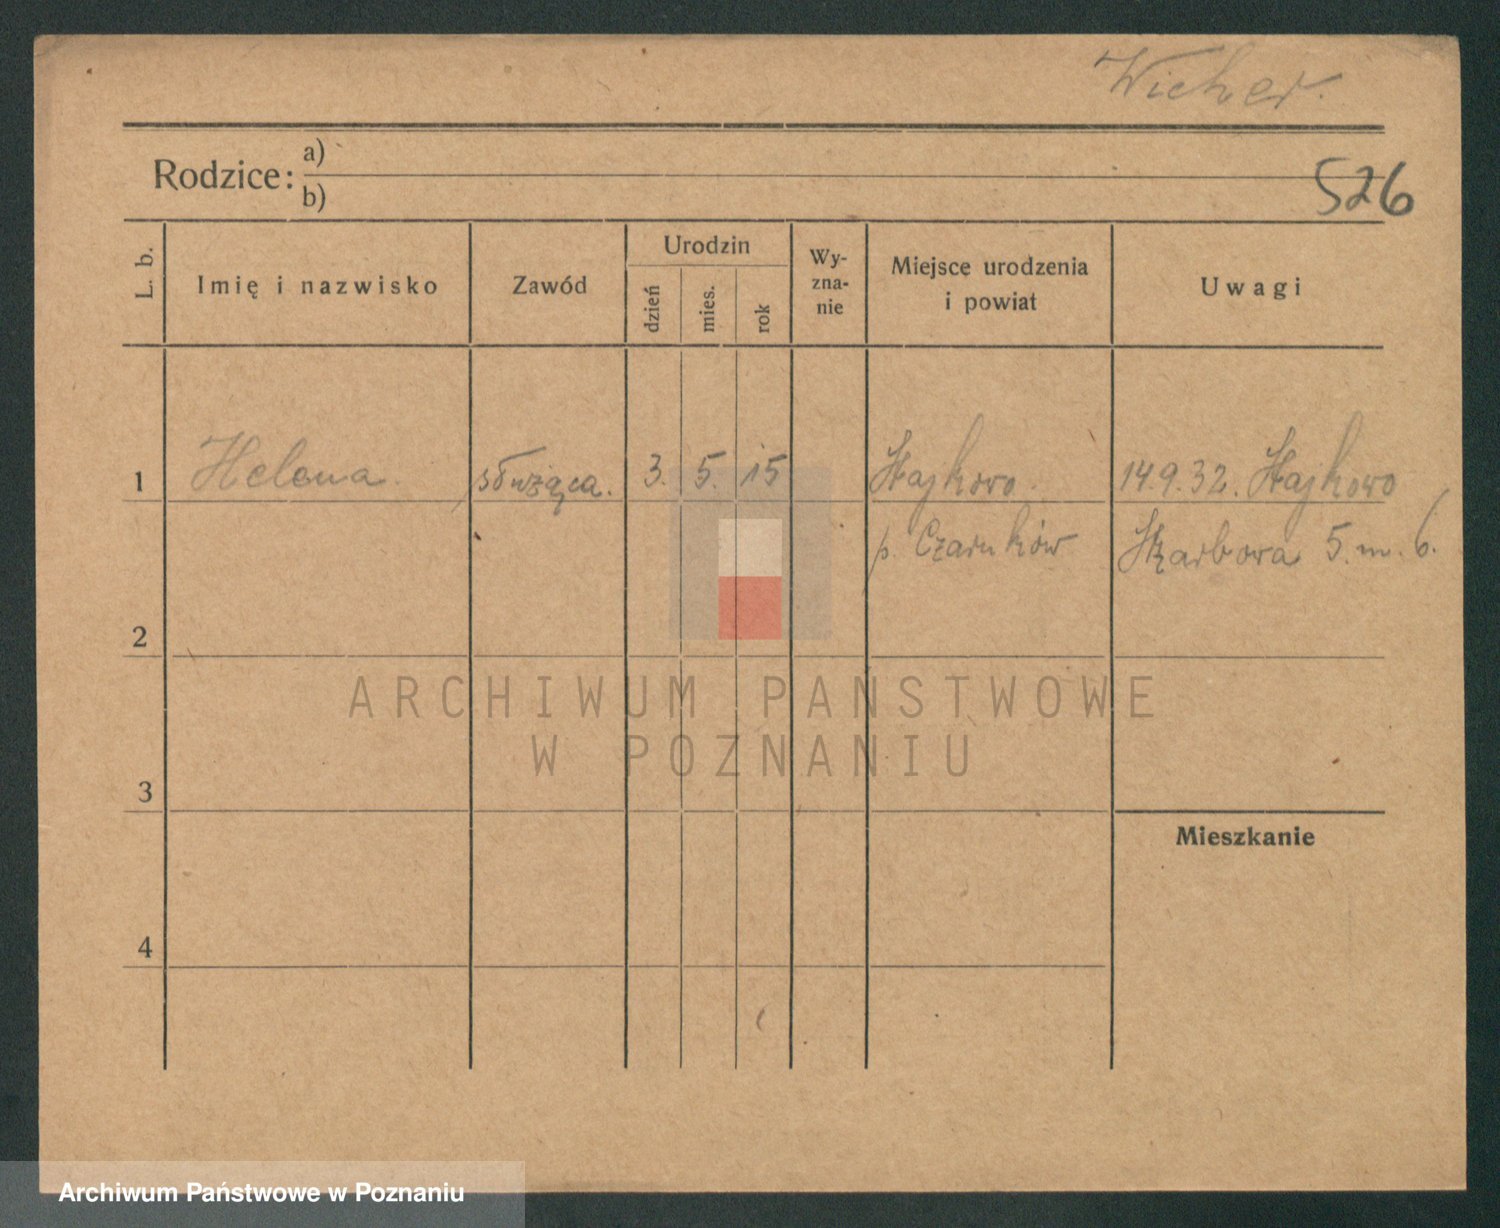 Wicher.
Rodzice:
a)
b)
526
L. b.
Imię i nazwisko
Zawód
Urodzin
dzień
mies.
rok
Wy-
zna-
nie
Miejsce urodzenia
i powiat
Uwagi
1 Helena. służąca. 3. 5. 15 Hajkowo 14.9.32. Hajkowo
p. Czarnków 5. m. 6.
2
ARCHIWUM PAŃSTWOWE
W POZNANIU
3
Mieszkanie
4
Archiwum Państwowe w Poznaniu